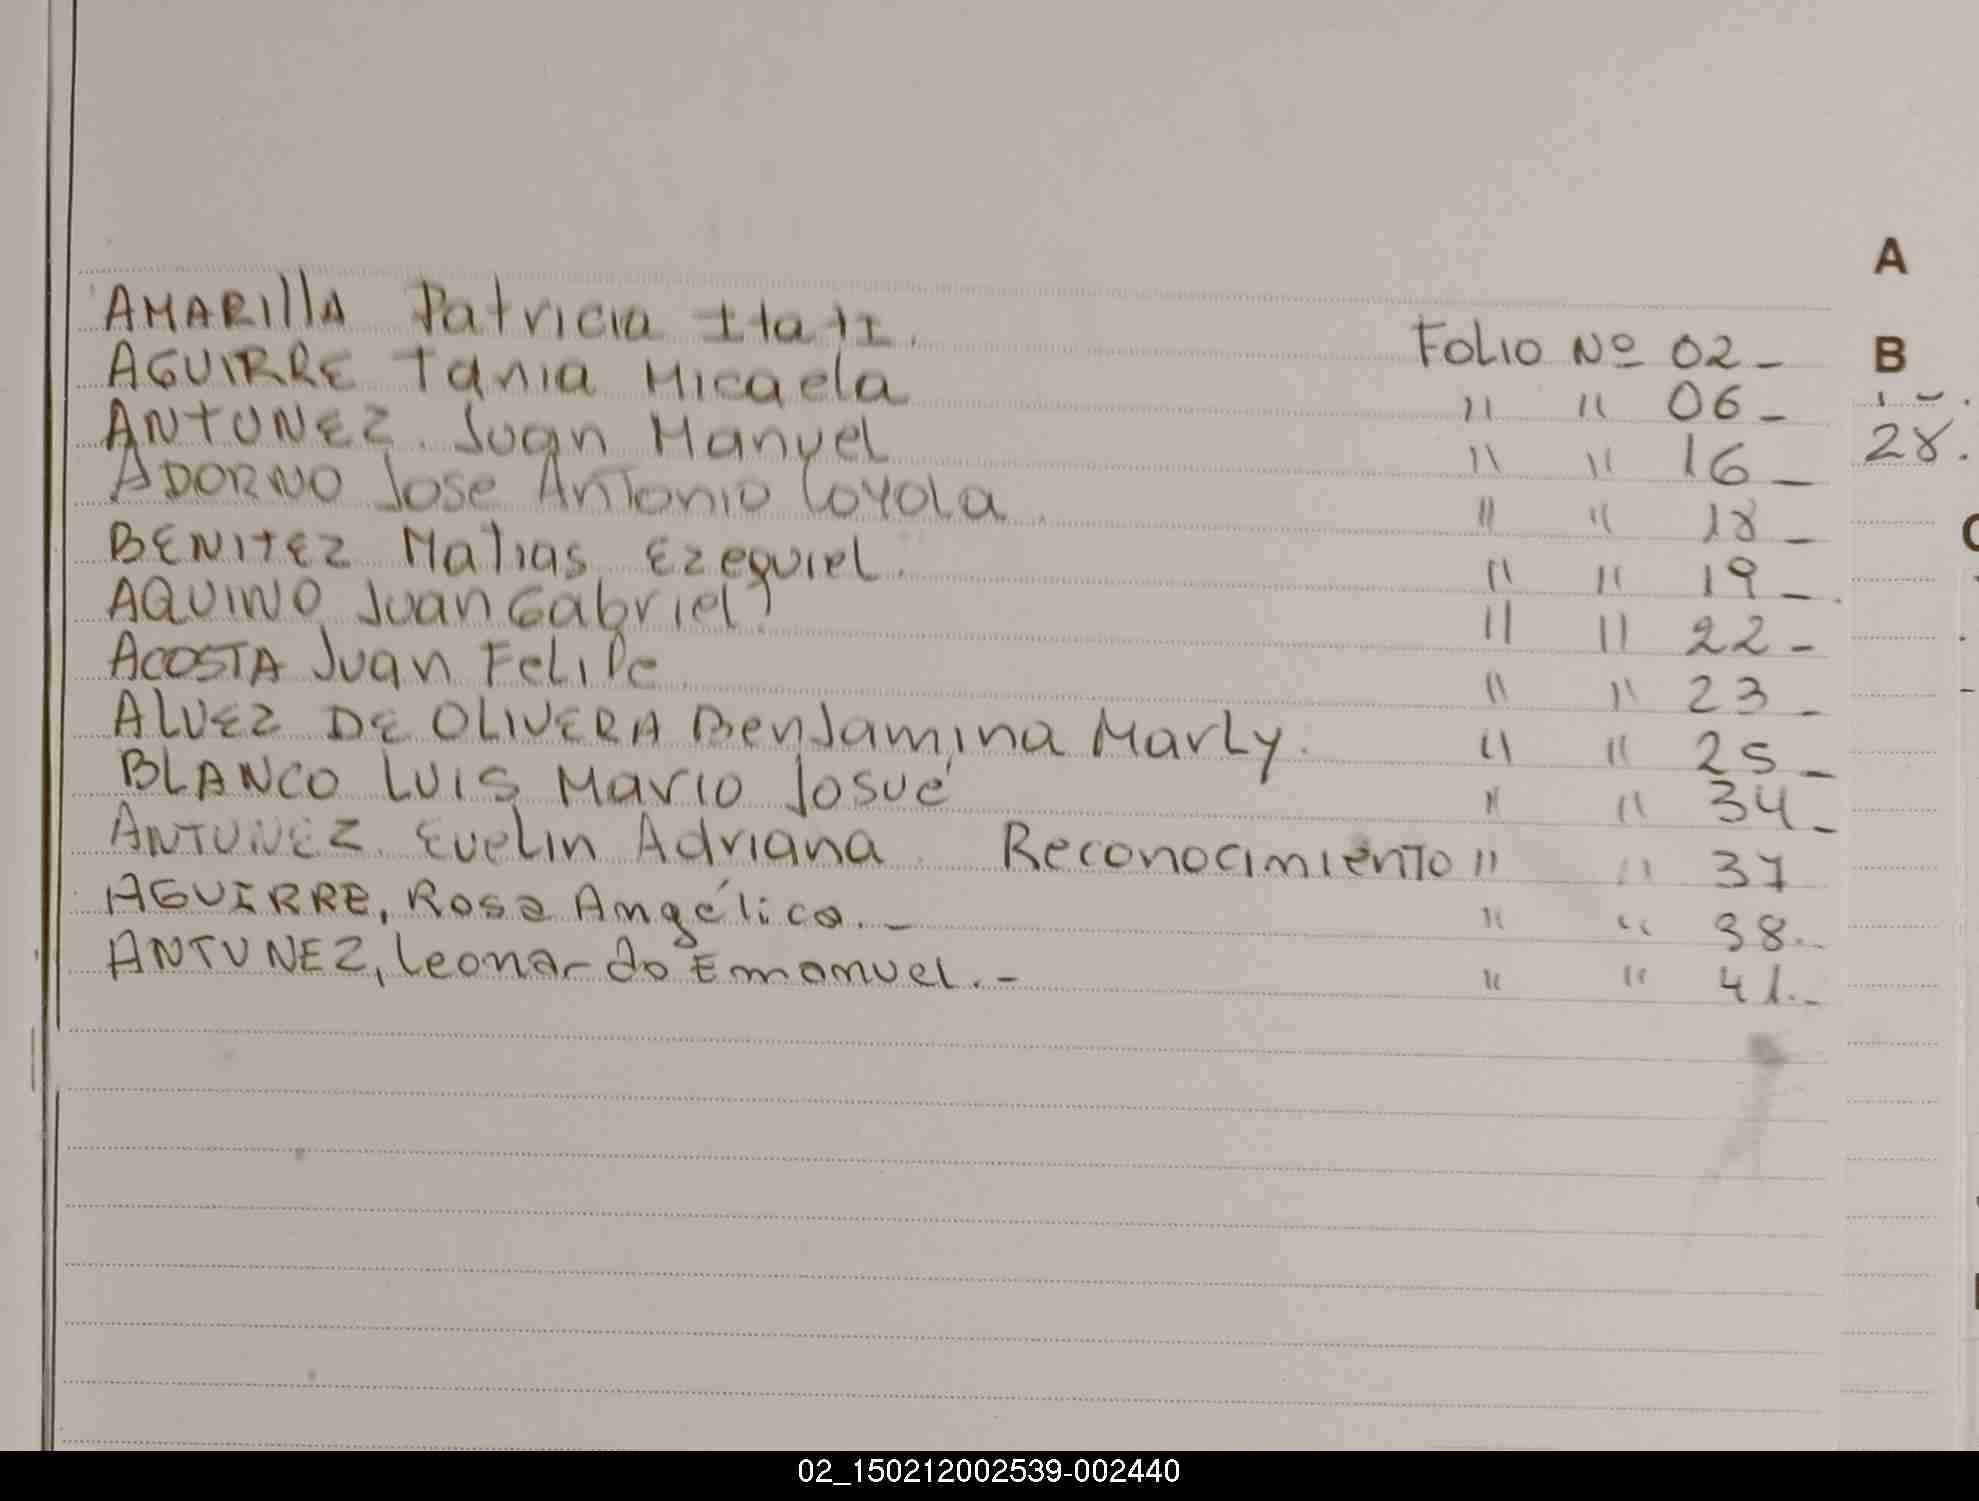 AMARILLA Patricia Itatí. Folio Nº 02-
AGUIRRE Tania Micaela " " 06-
ANTUNEZ. Juan Manuel " " 16-
ADORNO Jose Antonio Loyola. " " 18-
BENITEZ Matias Ezequiel. " " 19-.
AQUINO Juan Gabriel. " " 22-
ACOSTA Juan Felipe. " " 23-
ALVEZ DE OLIVERA Benjamina Marly. " " 25-
BLANCO LUIS Mario Josué " " 34-
ANTUNEZ. Evelin Adriana. Reconocimiento " " 37
AGUIRRE, Rosa Angélica.- " " 38.-
ANTUNEZ, Leonardo Emanuel.- " " 41.-
A
B
28.
02_150212002539-002440